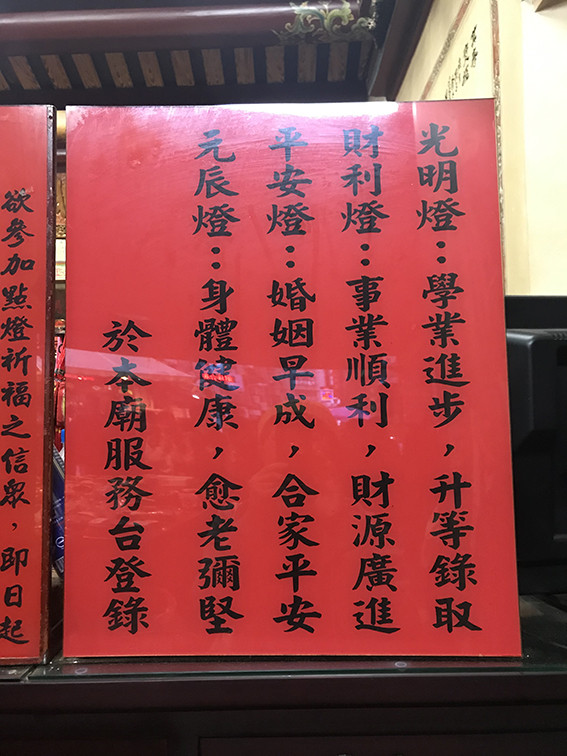 光明燈：學業進步，升等錄取
財利燈：事業順利，財源廣進
平安燈：婚姻早成，合家平安
元辰燈：身體健康，愈老彌堅
於本廟服務台登錄
欲參加點燈祈福之信眾，即日起